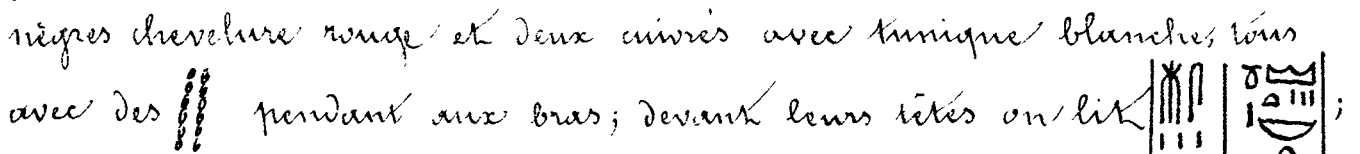 nègres chevelure rouge et deux cuivrés avec tunique blanche, tous
avec des pendant aux bras; devant leurs têtes on lit ;